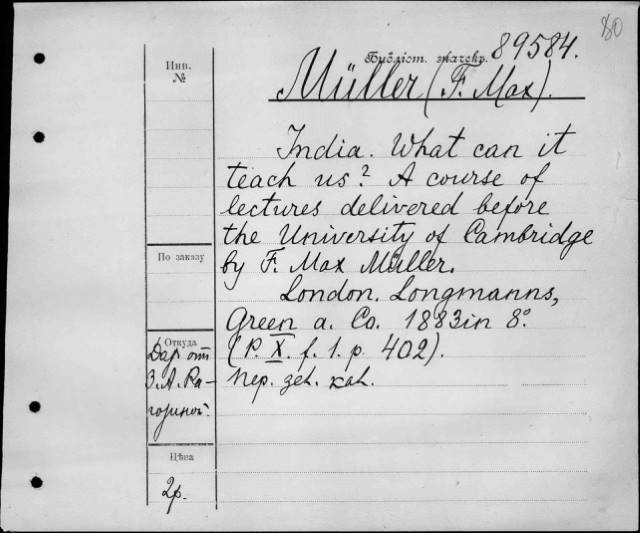 80
Библіот. значекъ. 89584.
Инв.
№
Müller (F. Max).
India. What can it
teach us? A course of
lectures delivered before
the University of Cambridge
by F. Max Müller.
London. Longmanns,
Green a. Co. 1883 in 8°.
(P. X. f. 1. p. 402).
Пер. цел. кан.
По заказу
Откуда
Дар отъ
З. А. Ра-
гозиной.
Цѣна
2р.